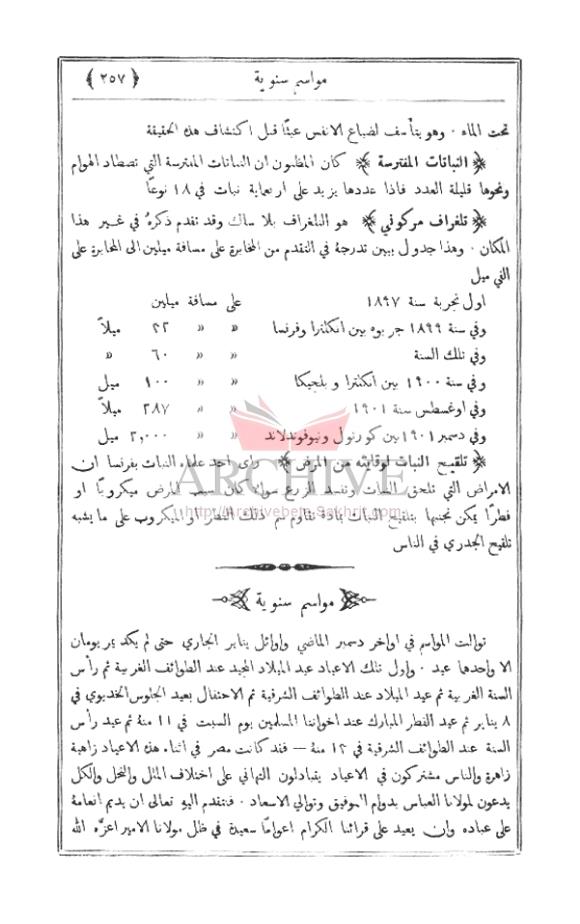 مواسم سنوية ﴿ ٢٥٧ ﴾
تحت الماء · وهو يتأسف لضياع الانفس عبثًا قبل اكتشاف هذه الحقيقة
﴿ النباتات المفترسة ﴾ كان المظنون ان النباتات المفترسة التي تصطاد الهوام
ونحوها قليلة العدد فاذا عددها يزيد على اربعماية نبات في ١٨ نوعًا
﴿ تلغراف مركوني ﴾ هو التلغراف بلا سلك وقد تقدم ذكرهُ في غير هذا
المكان · وهذا جدول يبين تدرجهُ في التقدم من المخابرة على مسافة ميلين الى المخابرة على
الفي ميل
اول تجربة سنة ١٨٩٧ على مسافة ميلين
وفي سنة ١٨٩٩ جربوه بين انكلترا وفرنسا » » ٢٢ ميلاً
وفي تلك السنة » » ٦٠ »
وفي سنة ١٩٠٠ بين انكلترا و بلجيكا » » ١٠٠ ميل
وفي اوغسطس سنة ١٩٠١ » » ٢٨٧ ميلاً
وفي دسمبر ١٩٠١ بين كورنول ونيوفوندلاند » » ٢,٠٠٠ ميل
﴿ تلقيح النبات لوقايته من المرض ﴾ رأى احد علماء النبات بفرنسا ان
الامراض التي تلحق النبات وتفسد الزرع سواء كان سبب المرض ميكروبًا او
فطرًا يمكن تجنبها بتلقيح النبات بمادة تقاوم سم ذلك الفطر او الميكروب على ما يشبه
تلقيح الجدري في الناس
ARCHIVE
http://Archivebeta.Sakhrit.com
مواسم سنوية
توالت المواسم في اواخر دسمبر الماضي واوائل يناير الجاري حتى لم يكد يمر يومان
الا واحدها عيد · واول تلك الاعياد عيد الميلاد المجيد عند الطوائف الغربية ثم رأس
السنة الغربية ثم عيد الميلاد عند الطوائف الشرقية ثم الاحتفال بعيد الجلوس الخديوي في
٨ يناير ثم عيد الفطر المبارك عند اخواننا المسلمين يوم السبت في ١١ منهُ ثم عيد رأس
السنة عند الطوائف الشرقية في ١٤ منهُ — فقد كانت مصر في اثناء هذه الاعياد زاهية
زاهرة والناس مشتركون في الاعياد يتبادلون التهاني على اختلاف الملل والنحل والكل
يدعون لمولانا العباس بدوام التوفيق وتوالي الاسعاد · فنتقدم اليه تعالى ان يديم انعامهُ
على عباده وان يعيد على قرائنا الكرام اعوامًا سعيدة في ظل مولانا الامير اعزَّه الله